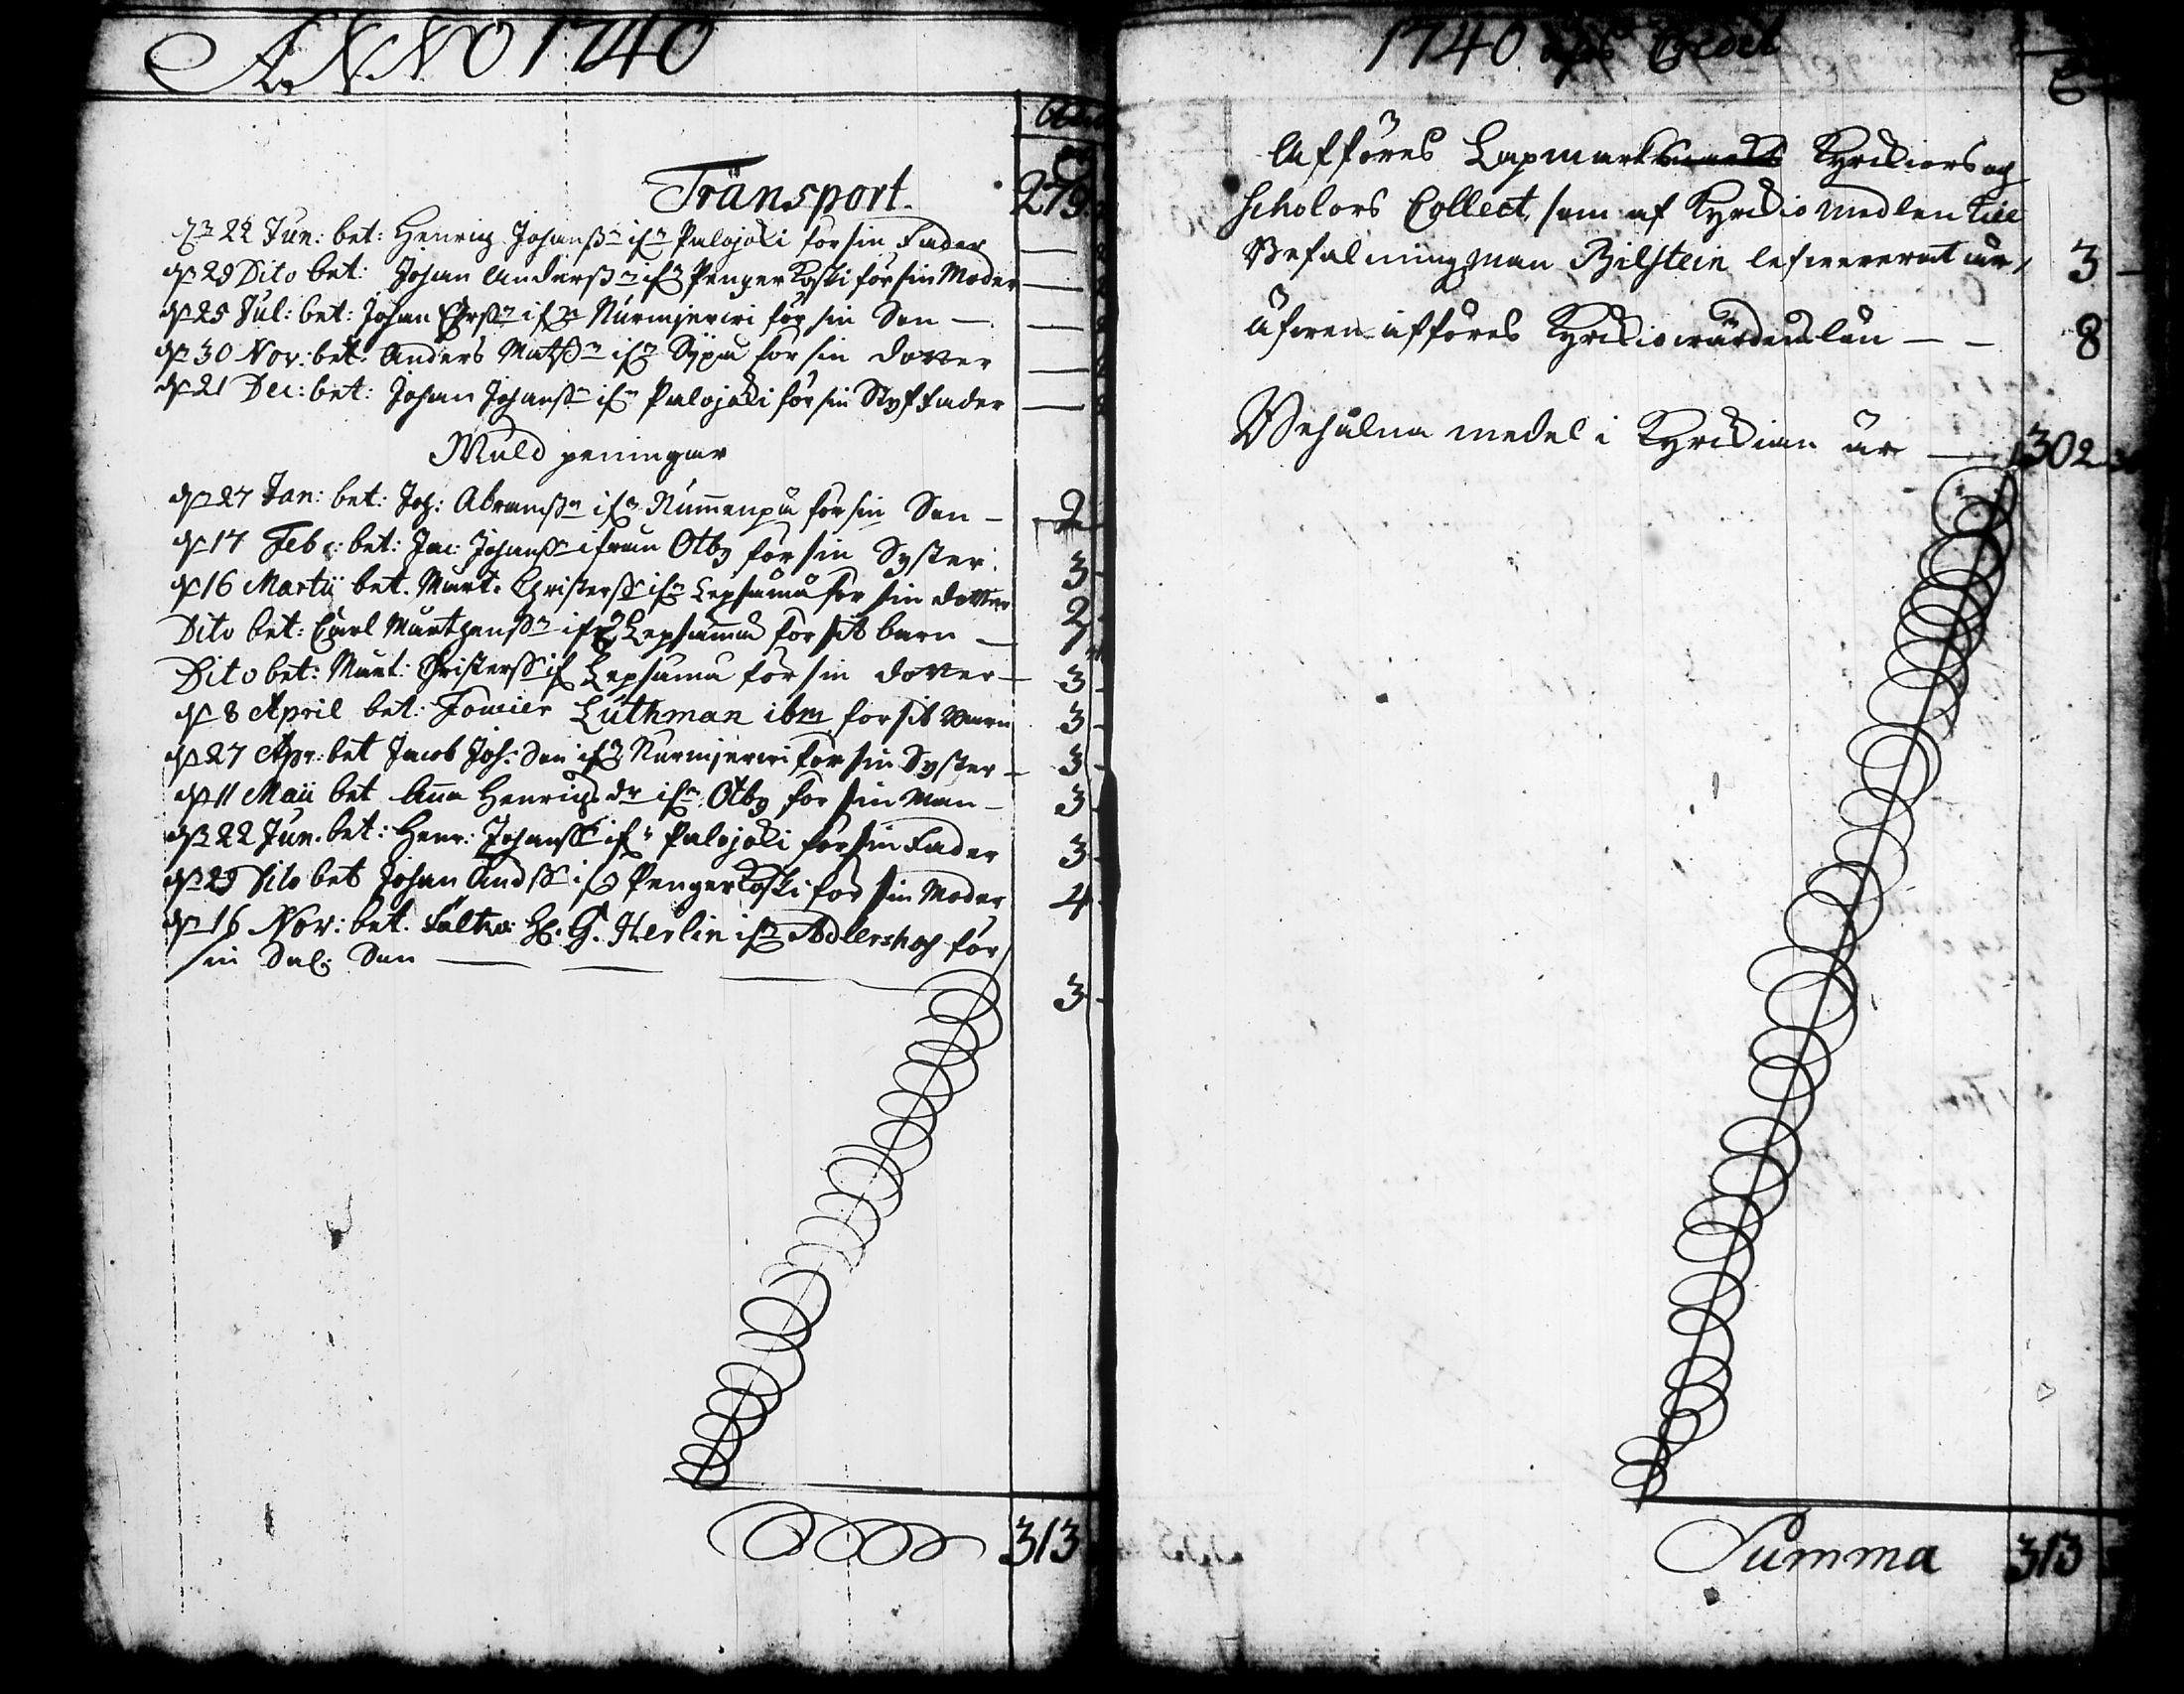 ANNO 1740
Transport. 279
d 22 Jun: bet: Henrig Johanßn ifn Palojoki för sin Fader —
d 29 Dito bet: Johan Anderßn ifn Pengerkoski för sin Moder —
d 25 Jul: bet: Johan Ehrßn ifn Nurmjerwi för sin Son —
d 30 Nov: bet: Anders Matßn ifn Sypä för sin dotter —
d 21 Dec: bet: Johan Johanßn ifn Palojoki för sin Styffader —
Muld peningar
d 27 Jan: bet: Joh: Abramßn ifn Num̄enpä för sin Son — 2
d 17 Feb: bet: Jac: Johanß ifrån Otby för sin Syster: 3
d 16 Martii bet. Mårt. Christerß ifn Lepsämä för sin dotter 2
Dito bet: Carl Mårthenßn ifn Lepsämä för sit barn —
Dito bet: Mårt: Christerß if Lepsämä för sin dotter — 3
d 8 April bet: Luthman ibm för sit Barn 3
d 27 Apr: bet Jacob Joh: Son ifn Nurmjerwi för sin Syster — 3
d 11 Maii bet Anna Henrigs dr ifn Otby för sin Man — 3
d 22 Jun. bet: Henr: Johanß ifn Palojoki för sin Fader 3
d 29 Dito bet Johan Andß if Pengerkoski för sin Moder 4
d 16 Nov: bet. H. G. Herlin ifn Adlershof för
sin Sal: Son — 3
313
1740 Cedel
Afföres Lapmarks Kyrckiors og
Scholors Collect, som af Kyrckio medlen till
Befalningzman Bilstein lefwererat är, 3 —
äfwen afföres Kyrckiowärdens lön — — 8
Behålna medel i Kyrckian är — 302
Summa 313